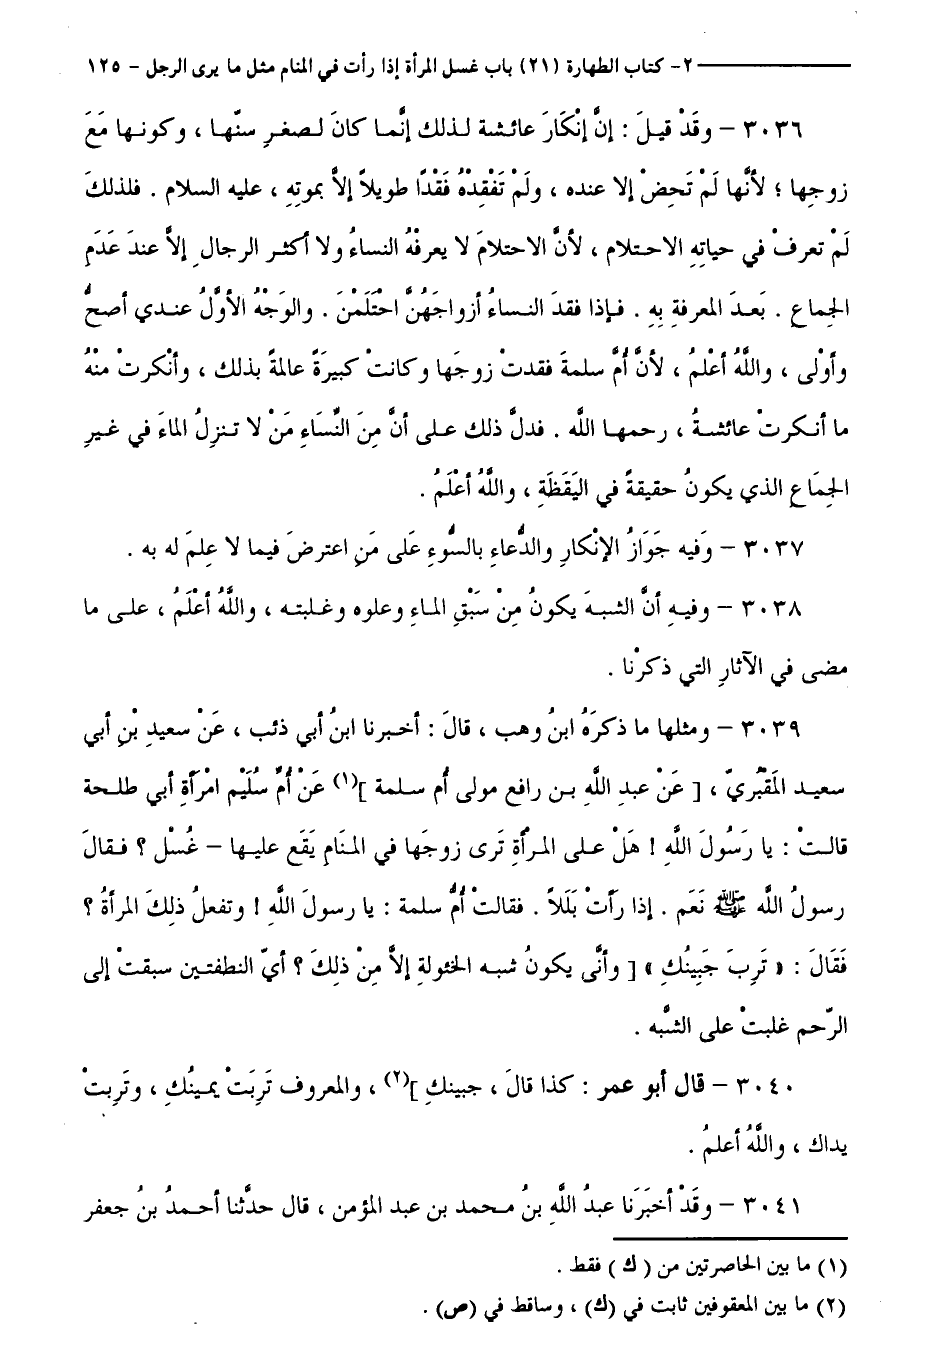 ٢- كتاب الطهارة (٢١) باب غسل المرأة إذا رأت في المنام مثل ما يرى الرجل – ١٢٥
٣٠٣٦ – وقَدْ قيلَ : إنَّ إنْكَارَ عائشة لذلك إنَّما كانَ لصغرِ سنّها ، وكونها مَعَ
زوجِها ؛ لأنَّها لَمْ تَحضْ إلا عنده ، ولَمْ تَفْقِدْهُ فَقْدًا طويلاً إلاَّ بموتِهِ ، عليه السلام . فلذلكَ
لَمْ تعرفْ في حياتِهِ الاحتلام ، لأنَّ الاحتلامَ لا يعرفُهُ النساءُ ولا أكثر الرجالِ إلاَّ عندَ عَدَمِ
الجماعِ . بَعدَ المعرفةِ بِهِ . فإذا فقدَ النساءُ أزواجَهُنَّ احْتَلَمْنَ . والوَجْهُ الأوَّلُ عندي أصَحُّ
وأوْلى ، واللَّهُ أعْلمُ ، لأنَّ أمَّ سلمةَ فقدتْ زوجَها وكانتْ كبيرَةً عالمةً بذلك ، وأنْكرتْ منْهُ
ما أنكرتْ عائشةُ ، رحمها اللَّه . فدلَّ ذلك على أنَّ مِنَ النِّسَاءِ مَنْ لا تنزلُ الماءَ في غيرِ
الجِمَاعِ الذي يكونُ حقيقةً في اليَقَظَةِ ، واللَّهُ أعْلَمُ .
٣٠٣٧ – وَفيه جَوَازُ الإنْكارِ والدُّعاءِ بالسُّوءِ عَلى مَنِ اعترضَ فيما لا علمَ له به .
٣٠٣٨ – وفيهِ أنَّ الشبهَ يكونُ مِنْ سَبْقِ الماءِ وعلوه وغلبته ، واللَّهُ أعْلَمُ ، على ما
مضى في الآثارِ التي ذكرْنا .
٣٠٣٩ – ومثلها ما ذكرَهُ ابنُ وهب ، قالَ : أخبرنا ابنُ أبي ذئب ، عَنْ سعيدِ بْنِ أبي
سعيد المَقْبُريّ ، [ عَنْ عبدِ اللَّهِ بن رافع مولى أم سلمة ](١) عَنْ أمِّ سُلَيْم امْرَأةِ أبي طلحة
قالتْ : يا رَسُولَ اللَّهِ ! هَلْ على المرْأةِ تَرى زوجَها في المنَام يَقَع عليها – غُسْل ؟ فقالَ
رسولُ اللَّه ﷺ نَعَم . إذا رأتْ بَلَلاً . فقالتْ أمُّ سلمة : يا رسولَ اللَّهِ ! وتفعلُ ذلِكَ المرأةُ ؟
فَقَالَ : « تَرِبَ جَبِينُكِ » [ وأنَّى يكونُ شبه الخئولة إلاَّ مِنْ ذلِكَ ؟ أيّ النطفتين سبقتْ إلى
الرّحم غلبتْ على الشَّبه .
٣٠٤٠ – قال أبو عمر : كذا قالَ ، جبينكِ ](٢) ، والمعروف تَربَتْ يمينُكِ ، وتَرِبتْ
يداك ، واللَّهُ أعلمُ .
٣٠٤١ – وقَدْ أخبَرَنا عبدُ اللَّهِ بنُ محمد بن عبد المؤمن ، قال حدَّثنا أحمدُ بنُ جعفر
(١) ما بين الحاصرتين من ( ك ) فقط .
(٢) ما بين المعقوفين ثابت في (ك) ، وساقط في (ص) .